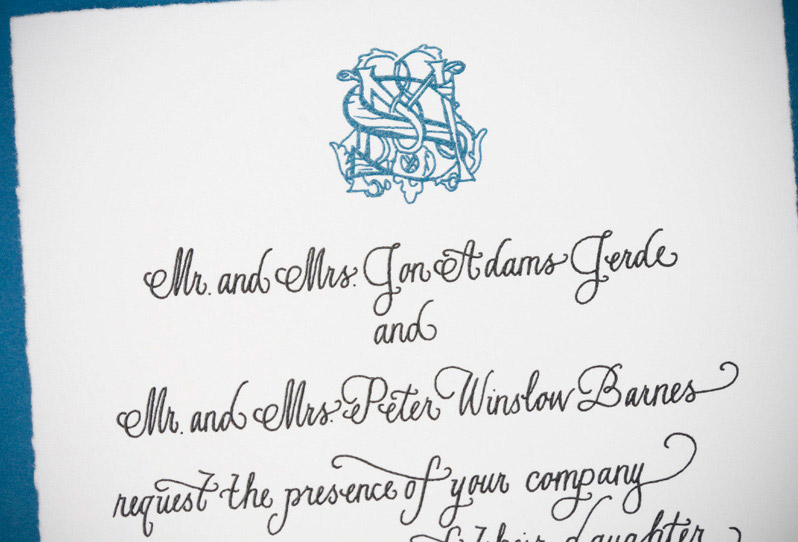 Mr. and Mrs. Jon Adams Jerde
and
Mr. and Mrs. Peter Winslow Barnes
request the presence of your company
of their daughter